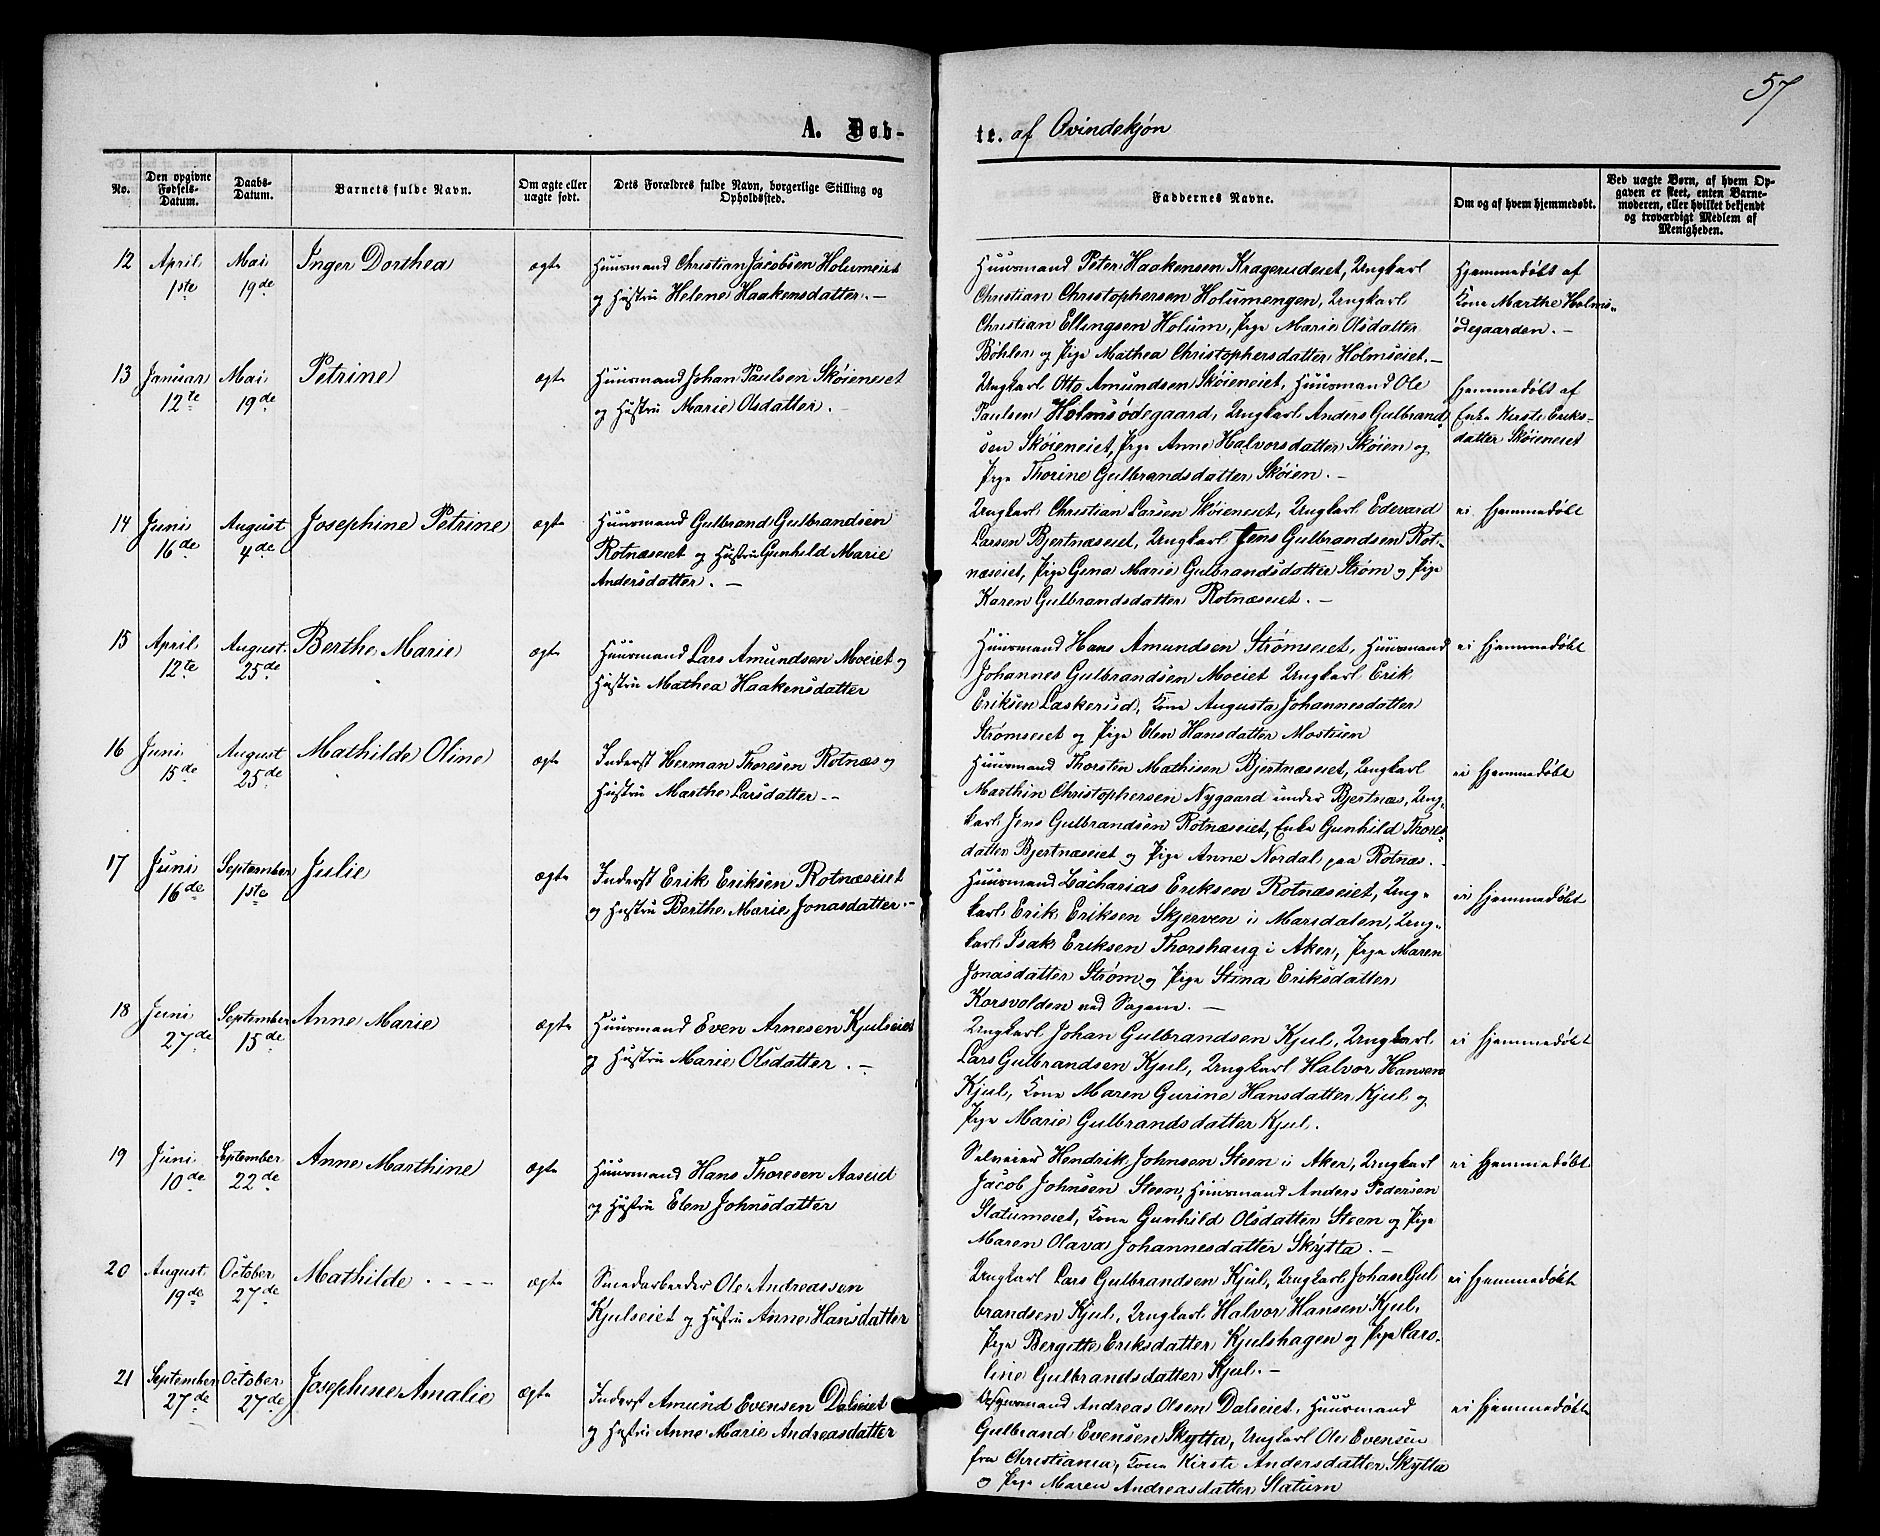 57
A. Døb-
te. af Qvindekjøn
No.
Den opgivne
Fødsels-
Datum.
Daabs-
Datum.
Barnets fulde Navn.
Om ægte eller
uægte født.
Dets Forældres fulde Navn, borgerlige Stilling og
Opholdssted.
Faddernes Navne.
Om og af hvem hjemmedøbt.
Ved uægte Børn, af hvem Op-
gaven er skeet, enten Barne-
moderen, eller hvilket bekjendt
og troværdigt Medlem af
Menigheden.
12
April
1ste
Mai
19de
Inger Dorthea
ægte
Huusmand Christian Jacobsen Holumeiet
og Hustru Helene Haakensdatter. —
Huusmand Peter Haakensen Kragerudeiet, Ungkarl
Christian Christophersen Holumengen, Ungkarl
Christian Ellingsen Holum, Pige Marie Olsdatter
Bøhler og Pige Mathea Christophersdatter Holmseiet. —
Hjemmedøbt af
Kone Marthe Holms-
ødegaarden. —
13
Januar
12te
Mai
19de
Petrine
ægte
Huusmand Johan Paulsen Skøieneiet
og Hustru Marie Olsdatter. —
Ungkarl Otto Amundsen Skøieneiet, Huusmand Ole
Paulsen Holmsødegaard, Ungkarl Anders Gulbrand-
sen Skøieneiet, Pige Anne Halvorsdatter Skøien og
Pige Thorine Gulbrandsdatter Skøien. —
Hjemmedøbt af
Enke Kirsti Eriks-
datter Skøieneiet
14
Juni
16de
August
4de
Josephine Petrine
ægte
Huusmand Gulbrand Gulbrandsen
Rotnæseiet og Hustru Gunhild Marie
Andersdatter. —
Ungkarl Christian Larsen Skøieneiet, Ungkarl Edevard
Larsen Bjertnæseiet, Ungkarl Jens Gulbrandsen Rot-
næseiet, Pige Gina Marie Gulbrandsdatter Strøm og Pige
Karen Gulbrandsdatter Rotnæseiet. —
ei hjemmedøbt
15
April
12te
August
25de
Berthe Marie
ægte
Huusmand Lars Amundsen Moeiet og
Hustru Mathea Haakensdatter
Huusmand Hans Amundsen Strømseiet, Huusmand
Johannes Gulbrandsen Moeiet Ungkarl Erik
Eriksen Laskerud, Kone Augusta Johannesdatter
Strømseiet og Pige Elen Hansdatter Mostuen
ei hjemmedøbt
16
Juni
15de
August
25de
Mathilde Oline
ægte
Inderst Herman Thoresen Rotnæs og
Hustru Marthe Larsdatter. —
Huusmand Thorsten Mathisen Bjertnæseiet, Ungkarl
Marthin Christophersen Nygaard under Bjertnæs, Ung-
karl Jens Gulbrandsen Rotnæseiet, Enke Gunhild Thores-
datter Bjertnæseiet og Pige Anne Nordal paa Rotnæs. —
ei hjemmedøbt
17
Juni
16de
September
1ste
Julie
ægte
Inderst Erik Eriksen Rotnæseiet
og Hustru Berthe Marie Jonasdatter. —
Huusmand Zacharias Eriksen Rotnæseiet, Ung-
karl Erik Eriksen Skjerven i Marsdalen, Ung-
karl Isak Eriksen Thorshaug i Aker, Pige Maren
Jonasdatter Strøm og Pige Stina Eriksdatter
Korsvolden ved Sagene. —
ei hjemmedøbt
18
Juni
27de
September
15de
Anne Marie
ægte
Huusmand Even Arnesen Kjulseiet
og Hustru Marie Olsdatter. —
Ungkarl Johan Gulbrandsen Kjul, Ungkarl
Lars Gulbrandsen Kjul, Ungkarl Halvor Hansen
Kjul, Kone Maren Gurine Hansdatter Kjul og
Pige Marie Gulbrandsdatter Kjul.
ei hjemmedøbt
19
Juni
10de
September
22de
Anne Marthine
ægte
Huusmand Hans Thoresen Aaseiet
og Hustru Elen Johnsdatter
Selveier Hendrik Johnsen Steen i Aker, Ungkarl
Jacob Johnsen Steen, Huusmand Anders Pedersen
Slatumeiet, Kone Gunhild Olsdatter Steen og Pige
Maren Olava Johannesdatter Skytta. —
ei hjemmedøbt
20
August
19de
October
27de
Mathilde
ægte
Smedarbeider Ole Andreassen
Kjulseiet og Hustru Anne Hansdatter
Ungkarl Lars Gulbrandsen Kjul, Ungkarl Johan Gul
brandsen Kjul, Ungkarl Halvor Hansen Kjul,
Pige Bergitte Eriksdatter Kjulshagen og Pige Caro-
line Gulbrandsdatter Kjul. —
ei hjemmedøbt
21
September
27de
October
27de
Josephine Amalie
ægte
Inderst Amund Evensen Dalseiet
og Hustru Anne Marie Andreasdatter
Andreas Olsen Dalseiet, Huusmand
Gulbrand Evensen Skytta, Ungkarl Ole Evensen
fra Christiania, Kone Kirsti Andersdatter Skytta
og Pige Maren Andreasdatter Slatum
ei hjemmedøbt